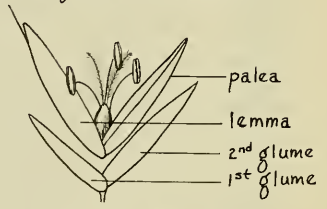 palea
lemma
2nd glume
1st glume